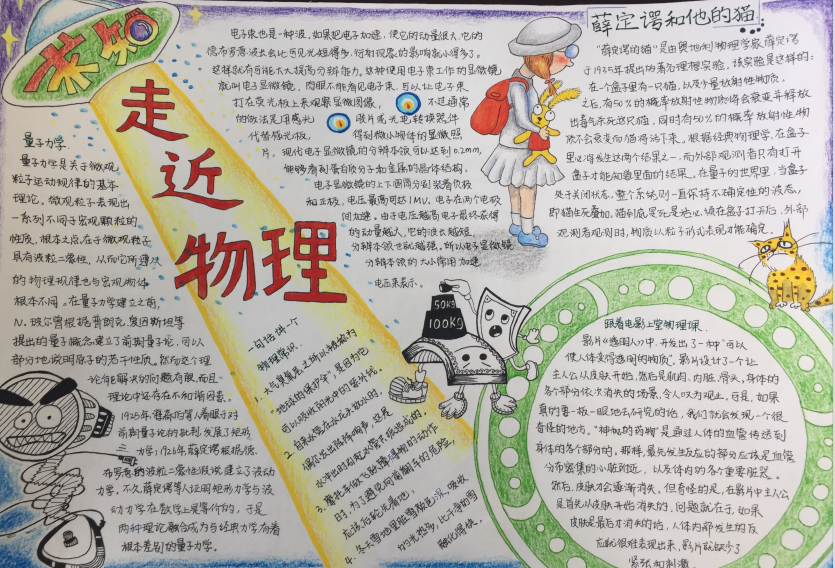 未知
走近
物理
电子束也是一种波,如果把电子加速,使它的动量很大,它的
德布罗意波长会比可见光短得多,衍射现象的影响就小得多了。
这样就有可能大大提高分辨能力。这种使用电子束工作的显微镜
就叫电子显微镜,肉眼不能看见电子束,可以让电子束
打在荧光板上来观察显微图像,不过通常
的做法是用感光
胶片或光电转换器件
代替荧光板,
得到微小物体的显微照
片。现代电子显微镜的分辨本领可以达到0.2mm,
能够看到蛋白质分子和金属的晶体结构。
电子显微镜的上下圆筒分别装着负极
和正极,电压最高可达1MV。电子在两个电极
间加速。由于电压越高电子最终获得
的动量越大,它的波长越短,
分辨本领也就越强,所以电子显微镜
分辨本领的大小常用加速
电压来表示。
薛定谔和他的猫
“薛定谔的猫”是由奥地利物理学家薛定谔
于1935年提出的著名理想实验,该实验是这样的:
在一个盒子里有一只猫,以及少量放射性物质,
之后,有50%的概率放射性物质将会衰变并释放
出毒气杀死这只猫,同时有50%的概率放射性物
质不会衰变而猫将活下来。根据经典物理学,在盒子
里必将发生这两个结果之一,而外部观测者只有打开
盒子才能知道里面的结果。在量子的世界里,当盒子
处于关闭状态,整个系统则一直保持不确定性的波态,
即猫生死叠加。猫到底是死是活必须在盒子打开后,外部
观测者观测时,物质以粒子形式表现才能确定。
量子力学
量子力学是关于微观
粒子运动规律的基本
理论,微观粒子表现出
一系列不同于宏观颗粒的
性质,根本之点在于微观粒子
具有波粒二象性,从而它所遵从
的物理规律也与宏观物体
根本不同。在量子学建立之前,
N.玻尔曾根据普朗克,爱因斯坦等
提出的量子概念建立了前期量子论,可以
部分地说明原子的若干性质,然而这个理
论所能解决的问题有限,而且
理论中还存在不和前因素。
1925年海森伯等人着眼于对
前期量子论的批判,发展了矩形
力学;1926年薛定谔根据德
布罗意的波粒二象性假设建立了波动
力学,不久薛定谔等人证明矩形力学与波
动力学在数学上是等价的,于是
两种理论融合成为与经典力学有着
根本差别的量子力学。
一句话讲一个
物理常识.
1、大气臭氧层之所以被称为
“地球的保护伞”是因为它
可以吸收阳光中的紫外线。
2.自来水管在放水
偶尔会出现阵阵响声,这是
水冲出时引起水管共振造成的。
时,为了避免向前翻车的危险,
应该捏后先着地。
的光热多,比干净的雪
融化得快。
50KG
100KG
跟着电影上堂物理课.
影片《透明人》中,开发出了一种“可以
使人体变得透明的物质”,影片设计了一个让
主人公从皮肤开始,然后是肌肉、内脏、骨头,身体的
各个部分依次消失的场景,令人叹为观止,可是,如果
真的要一板一眼地去研究的话,我们就会发现一个很
奇怪的地方,“神秘的药物”是通过人体的血管传送到
身体的各个部分的,那样,最先发生反应的部分应该是血管
分布密集的心脏附近,以及体内的各个重要脏器。
然后,皮肤才会逐渐消失,但奇怪的是,在影片中主人公
是首先从皮肤开始消失的,问题就在于,如果
皮肤是最后才消失的话,人体内部发生的反
应就很难表现出来,影片就缺少了
紧张和刺激